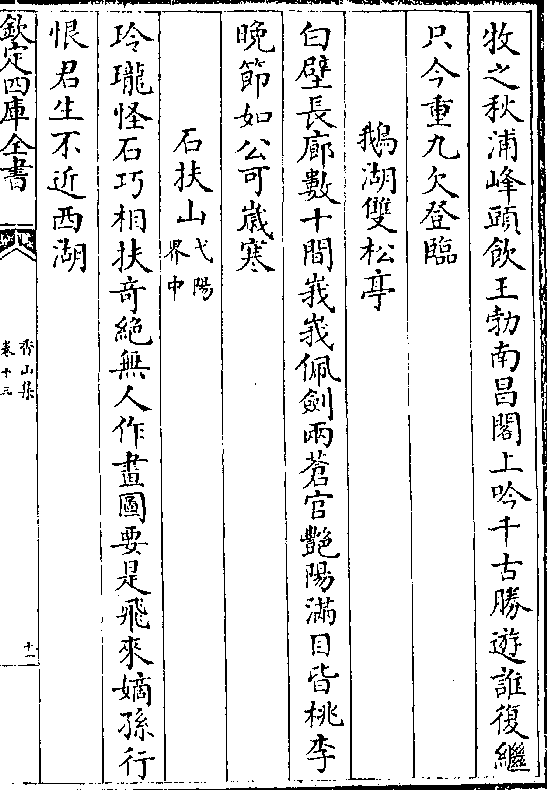 牧之秋浦峰頭飲王勃南昌閣上吟千古勝遊誰復繼
只今重九欠登臨
鵝湖雙松亭
白壁長廊數十間峩峩佩劍兩蒼官艷陽滿目皆桃李
晚節如公可嵗寒
石扶山弋陽界中
玲瓏怪石巧相扶竒絶無人作畫圖要是飛來嫡孫行
恨君生不近西湖
欽定四庫全書
香山集
卷十三
十一